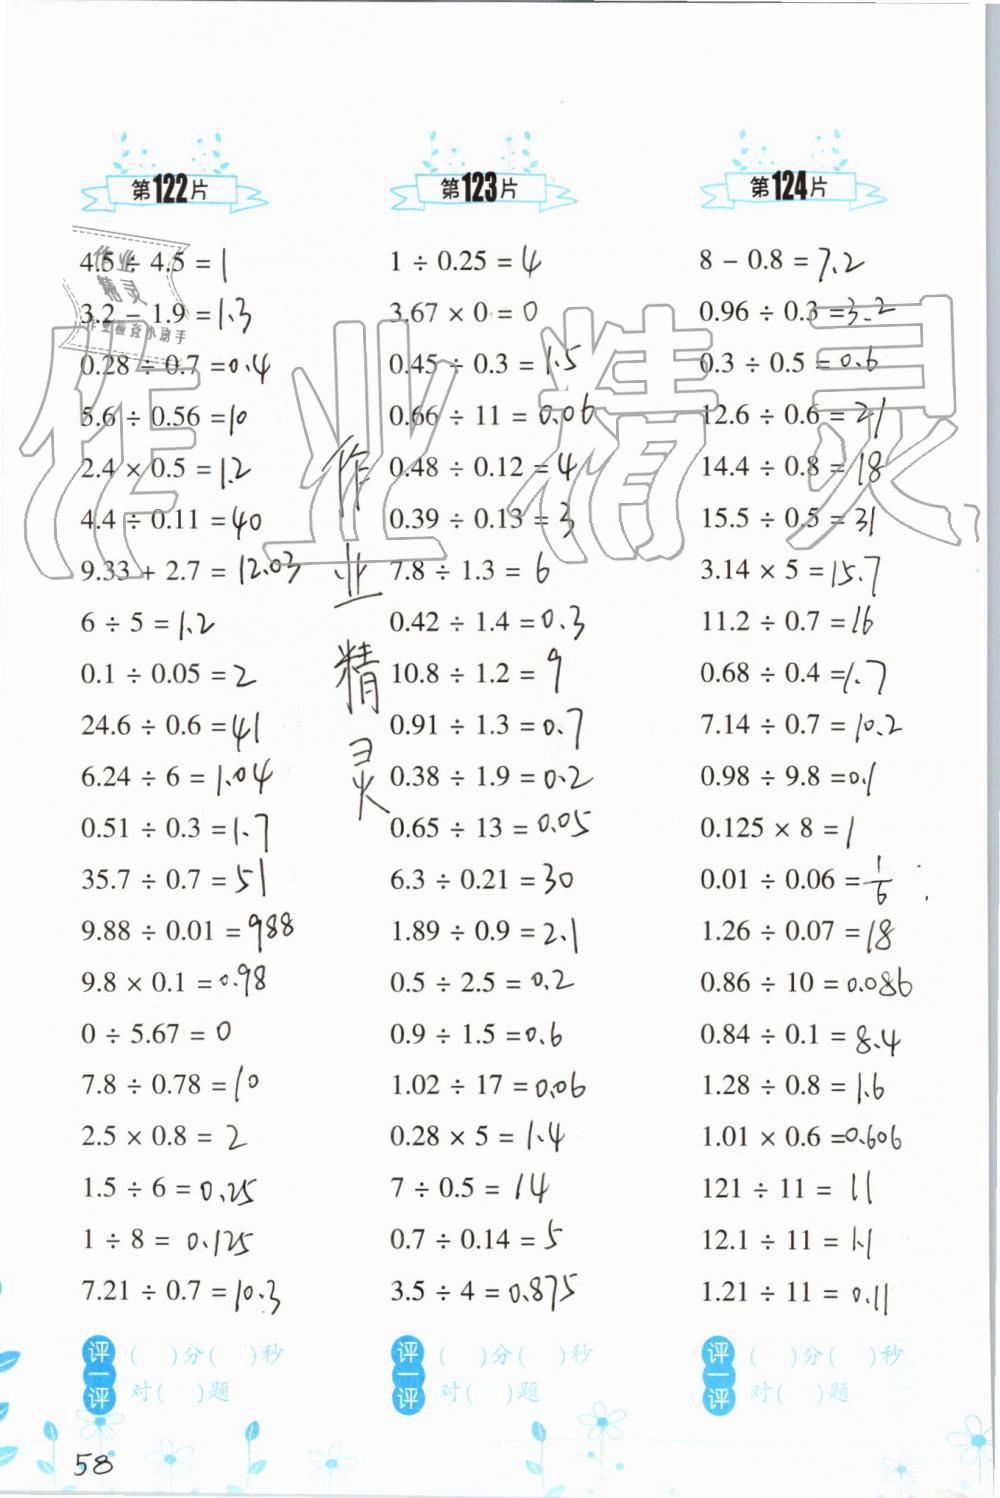 第122片
4.5 ÷ 4.5 = 1
3.2 − 1.9 = 1.3
0.28 ÷ 0.7 = 0.4
5.6 ÷ 0.56 = 10
2.4 × 0.5 = 1.2
4.4 ÷ 0.11 = 40
9.33 + 2.7 = 12.03
6 ÷ 5 = 1.2
0.1 ÷ 0.05 = 2
24.6 ÷ 0.6 = 41
6.24 ÷ 6 = 1.04
0.51 ÷ 0.3 = 1.7
35.7 ÷ 0.7 = 51
9.88 ÷ 0.01 = 988
9.8 × 0.1 = 0.98
0 ÷ 5.67 = 0
7.8 ÷ 0.78 = 10
2.5 × 0.8 = 2
1.5 ÷ 6 = 0.25
1 ÷ 8 = 0.125
7.21 ÷ 0.7 = 10.3
评一评
( )分( )秒
对( )题
第123片
1 ÷ 0.25 = 4
3.67 × 0 = 0
0.45 ÷ 0.3 = 1.5
0.66 ÷ 11 = 0.06
0.48 ÷ 0.12 = 4
0.39 ÷ 0.13 = 3
7.8 ÷ 1.3 = 6
0.42 ÷ 1.4 = 0.3
10.8 ÷ 1.2 = 9
0.91 ÷ 1.3 = 0.7
0.38 ÷ 1.9 = 0.2
0.65 ÷ 13 = 0.05
6.3 ÷ 0.21 = 30
1.89 ÷ 0.9 = 2.1
0.5 ÷ 2.5 = 0.2
0.9 ÷ 1.5 = 0.6
1.02 ÷ 17 = 0.06
0.28 × 5 = 1.4
7 ÷ 0.5 = 14
0.7 ÷ 0.14 = 5
3.5 ÷ 4 = 0.875
评一评
( )分( )秒
对( )题
第124片
8 − 0.8 = 7.2
0.96 ÷ 0.3 = 3.2
0.3 ÷ 0.5 = 0.6
12.6 ÷ 0.6 = 21
14.4 ÷ 0.8 = 18
15.5 ÷ 0.5 = 31
3.14 × 5 = 15.7
11.2 ÷ 0.7 = 16
0.68 ÷ 0.4 = 1.7
7.14 ÷ 0.7 = 10.2
0.98 ÷ 9.8 = 0.1
0.125 × 8 = 1
0.01 ÷ 0.06 = 1/6
1.26 ÷ 0.07 = 18
0.86 ÷ 10 = 0.086
0.84 ÷ 0.1 = 8.4
1.28 ÷ 0.8 = 1.6
1.01 × 0.6 = 0.606
121 ÷ 11 = 11
12.1 ÷ 11 = 1.1
1.21 ÷ 11 = 0.11
评一评
( )分( )秒
对( )题
作业精灵
作业精灵
作业精灵
作业检查小助手
58